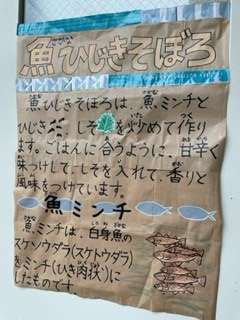 魚ひじきそぼろ
魚ひじきそぼろは、魚ミンチと
ひじき、しそを炒めて作り
ます。ごはんに合うように、甘辛く
味つけして、しそを入れて、香りと
風味をつけています。
魚ミンチ
魚ミンチは、白身魚の
スケソウダラ(スケトウダラ)
をミンチ(ひき肉状)に
したものです